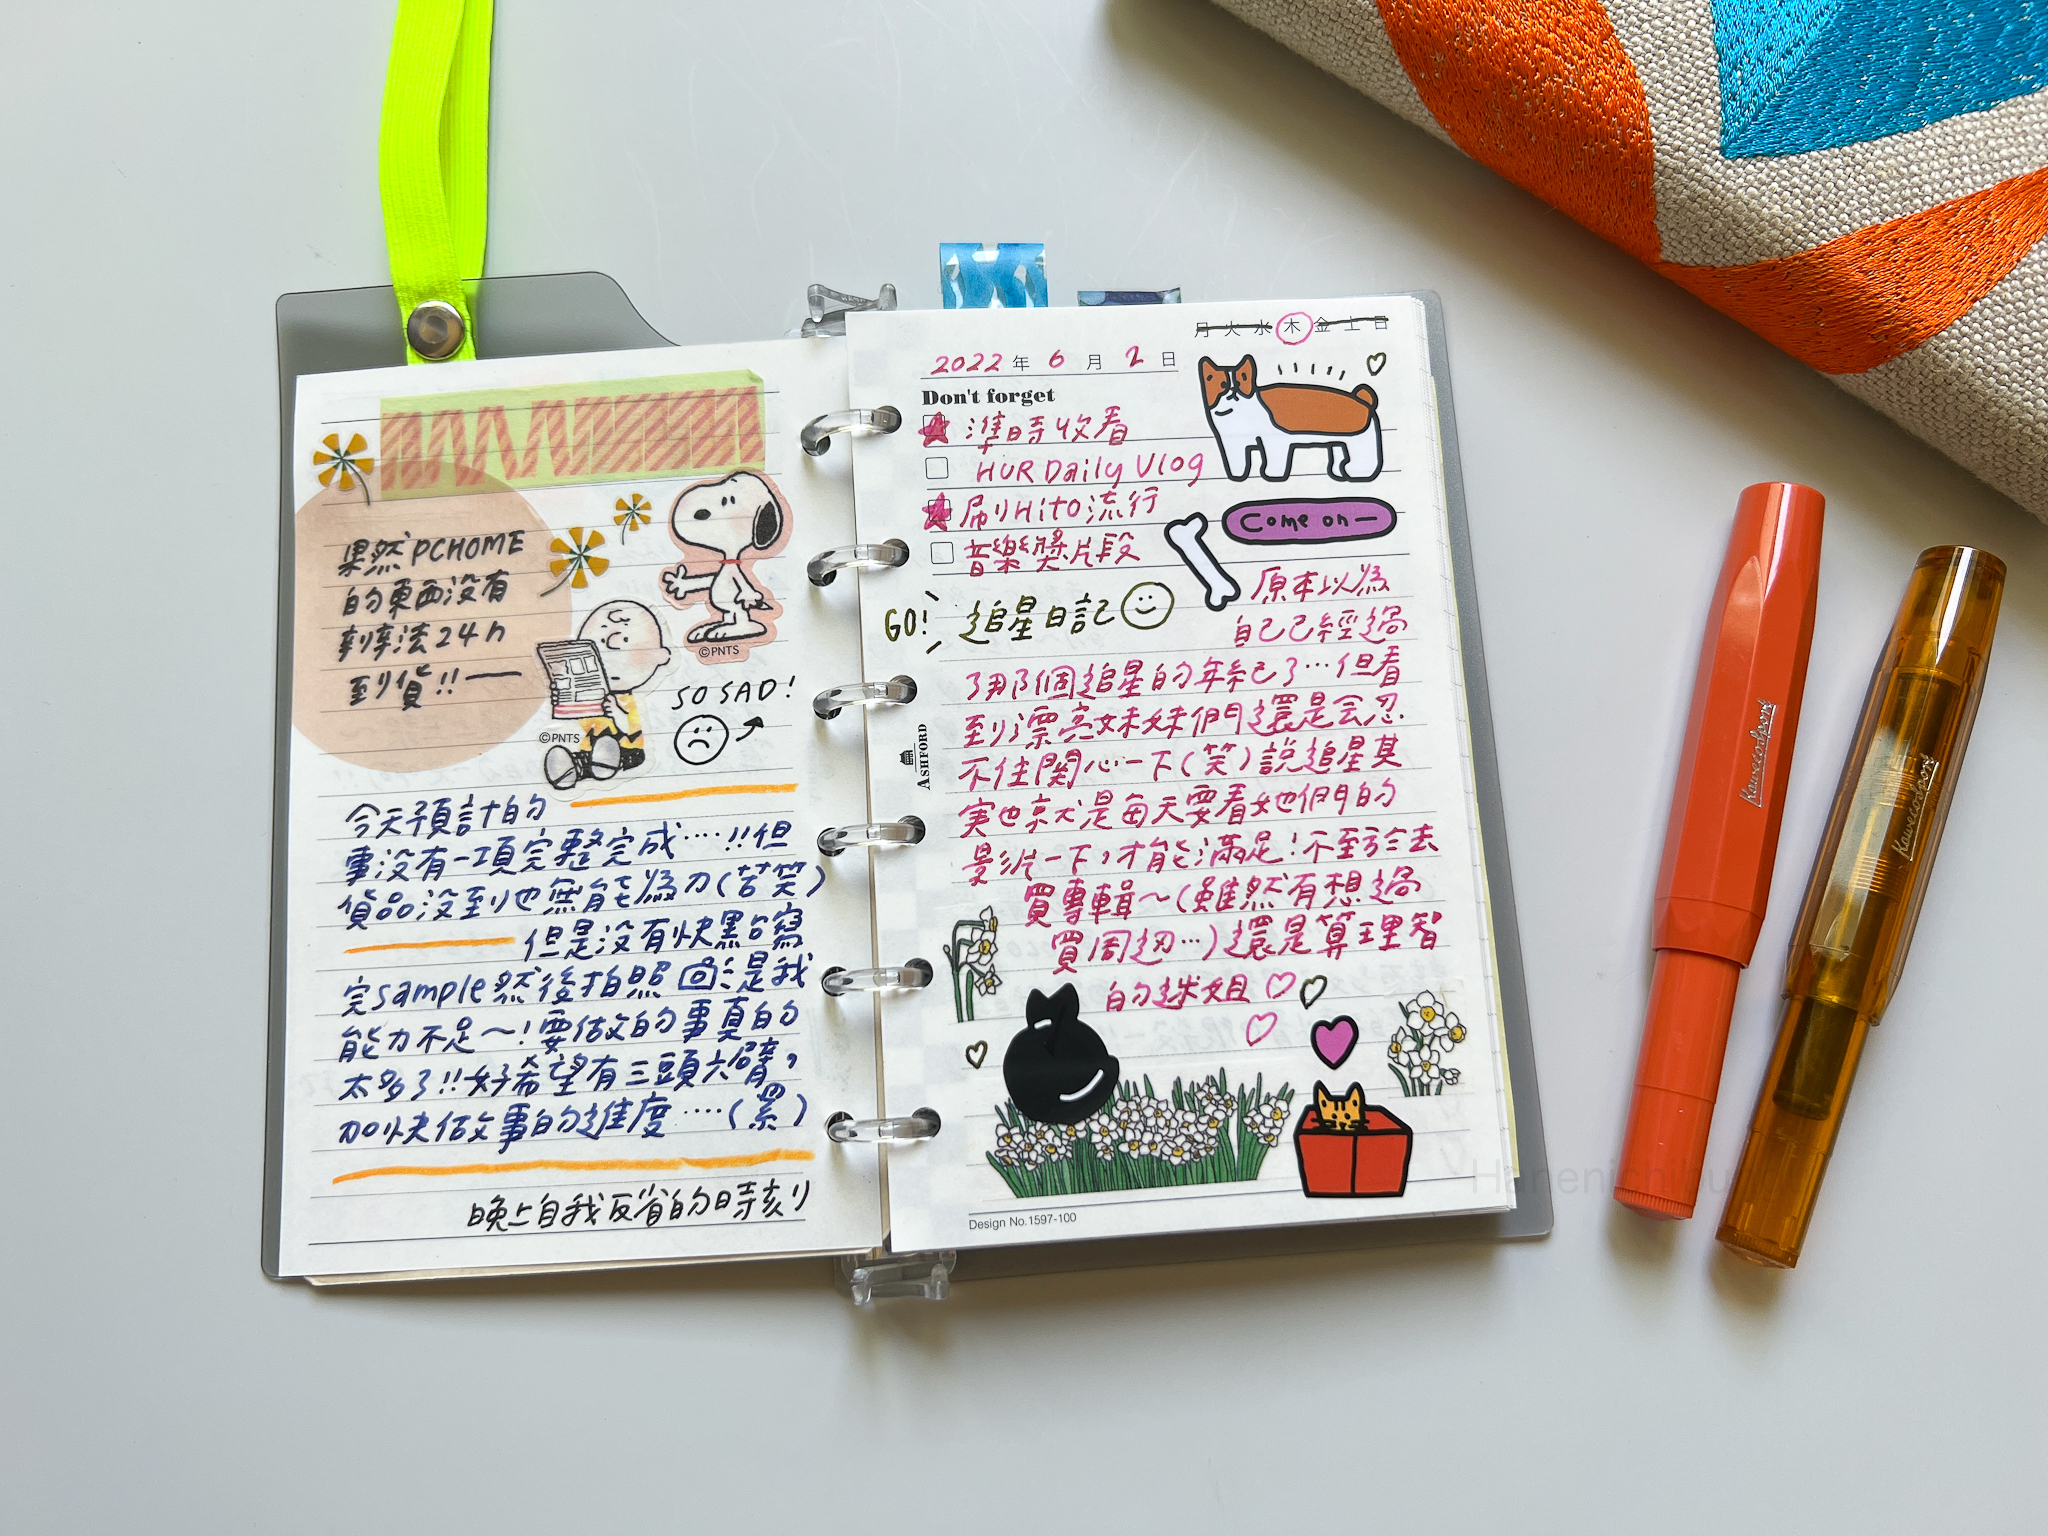 果然PCHOME
的東西沒有
辦法24h
到貨!!一
©PNTS
©PNTS
SO SAD!
今天預計的
事沒有一項完整完成....!!但
貨品沒到也無能為力(苦笑)
但是沒有快點寫
完sample然後拍照回是我
能力不足~!要做的事真的
太多了!!好希望有三頭六臂,
加快做事的進度....(累)
晚上自我反省的時刻
月 火 水 木 金 土 日
2022年 6月 2日
Don't forget
準時收看
HUR Daily Vlog
刷Hito流行
音樂獎片段
Come on—
GO! 追星日記
原本以為
自己已經過
了那個追星的年紀了...但看
到漂亮妹妹們還是会忍
不住関心一下(笑)說追星其
実也就是每天要看她們的
影片一下,才能滿足!不至於去
買專輯~(雖然有想過
買周边...)還是算理智
的迷姐
ASHFORD
Design No.1597-100
Kaweco Sport
Kaweco Sport